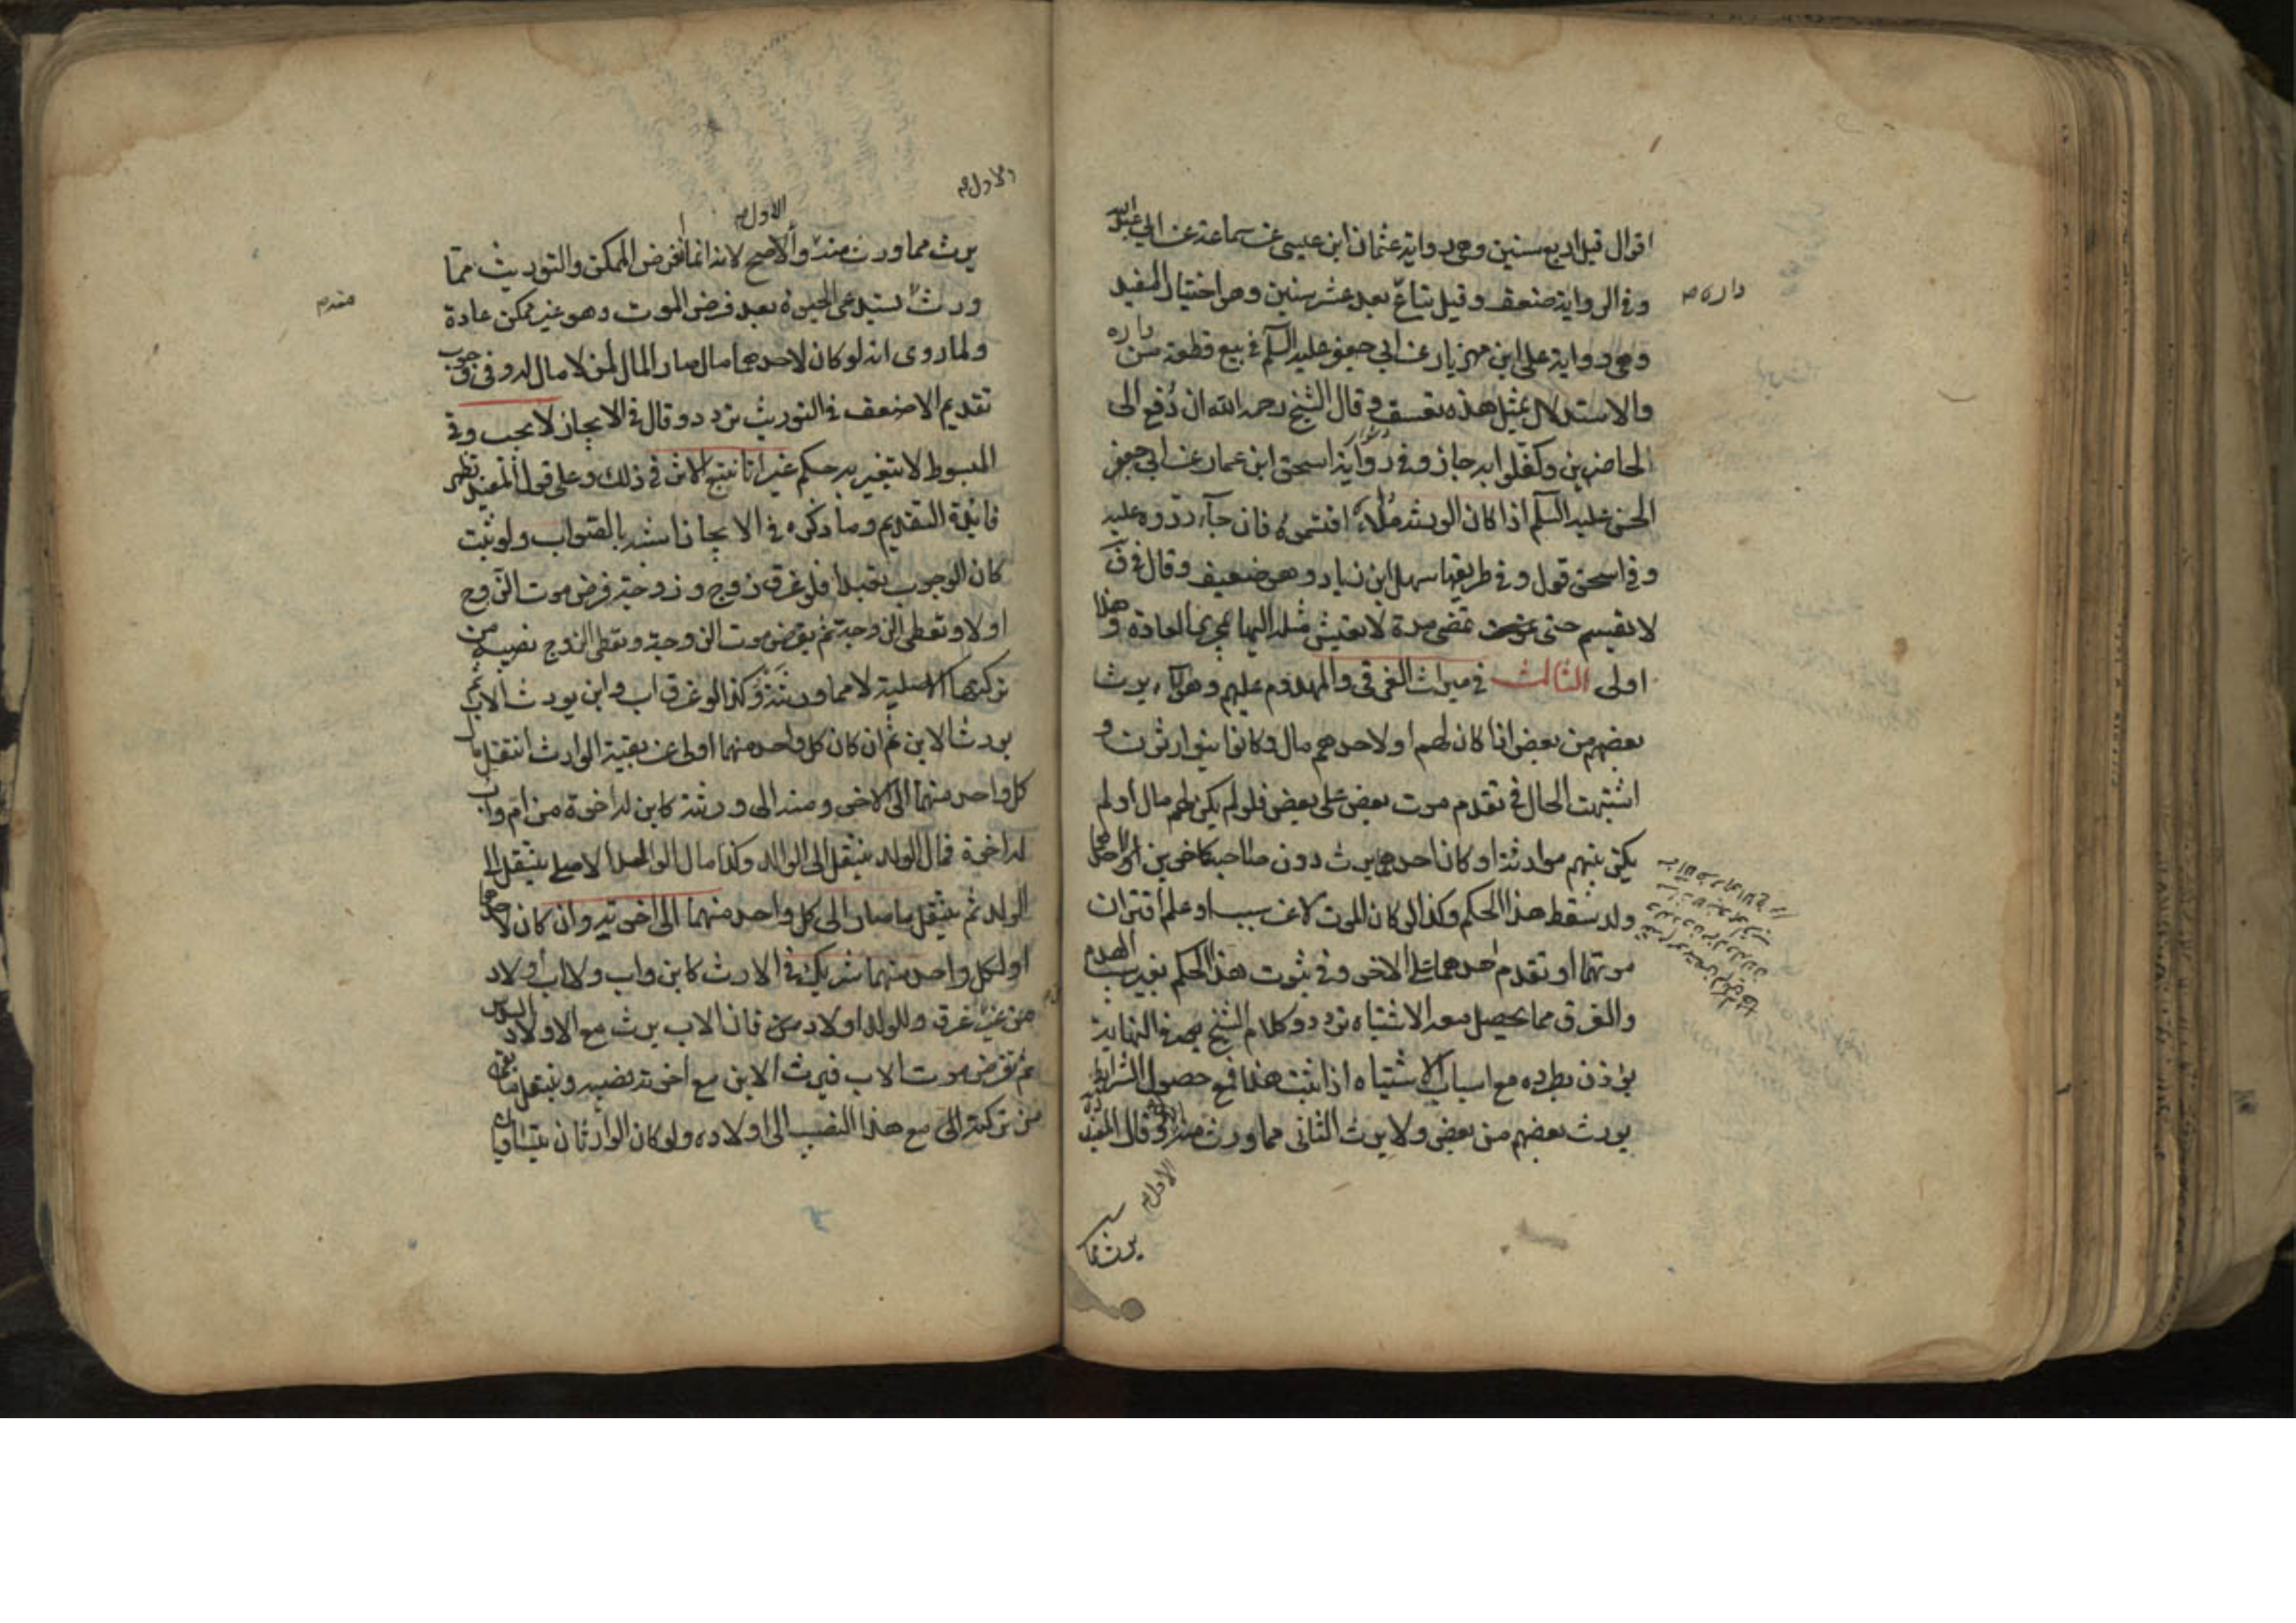 اقوال قيل اربع سنين وهى رواية عثمان ابن عيسى عن سماعة عن ابي عبد الله
وفى الرواية ضعف وقيل تباع بعد عشر سنين وهو اختيار المفيد
داره
وهى رواية على ابن مهزيار عن ابي جعفر عليه السلم فى بيع قطعة من داره
والاستدلال بمثل هذه تعسف وقال الشيخ رحمه الله ان دفع الى
الحاضرين وكفلوا به جاز وفى رواية اسحق ابن عمار عن ابي جعفر
الحسن عليه السلم اذا كان الورثة ملاء اقتسموه فان جاء ردوه عليه
وفى اسحق قول وفى طريقها سهل ابن زياد وهو ضعيف وقال فى ف
لا يقسم حتى تمضى مدة لا يعيش مثله اليها بمجرى العادة وهذا
اولى الثالث فى ميراث الغرقى والمهدوم عليهم وهؤلاء يرث
بعضهم من بعض اذا كان لهم او لاحدهم مال وكانوا يتوارثون و
اشتبهت الحال فى تقدم موت بعض على بعض فلو لم يكن لهم مال او لم
يكن بينهم موارثة او كان احدهما يرث دون صاحبه كاخوين لاحدهما
ولد سقط هذا الحكم وكذا لو كان الموت لا عن سبب او علم اقتران
موتهما او تقدم احدهما على الاخر وفى ثبوت هذا الحكم بغير سبب الهدم
والغرق مما يحصل معه الاشتباه تردد وكلام الشيخ فى النهاية
يؤذن بطرده مع اسباب الاشتباه اذا ثبت هذا فمع حصول الشرايط
يورث بعضهم من بعض ولا يورث الثانى مما ورث منه وقال المفيد ره
الاول
يرث مما
الاول
يرث مما ورث منه والاصح لانه انما نفرض الممكن والتوريث مما
منه
ورث يستدعى الحيوة بعد فرض الموت وهو غير ممكن عادة
ولما روى انه لو كان لاحدهما مال صار المال لمن لا مال له وفى وجوب
تقديم الاضعف فى التوريث تردد وقال فى الايجاز لا يجب وفى
المبسوط لا يتغير به حكم غير انا نتبع الاثر فى ذلك وعلى قول المفيد تظهر
فائدة التقديم وما ذكره فى الايجاز اشبه بالصواب ولو ثبت
كان الوجوب تعبدا فلو غرق زوج وزوجة فرض موت الزوج
اولا وتعطى الزوجة ثم يفرض موت الزوجة ويعطى الزوج نصيبه من
تركتها الاصلية لا مما ورثته وكذا لو غرق اب وابن يورث الاب ثم
يورث الابن ثم ان كان كل واحد منهما اولى من بقية الوارث انتقل مال
كل واحد منهما الى الاخر ومنه الى ورثته كابن له اخوة من ام واب
له اخوة فمال الولد ينتقل الى الوالد وكذا مال الوالد الاصلى ينتقل الى
الولد ثم ينتقل ما صار الى كل واحد منهما الى اخوته وان كان لاحدهما
او لكل واحد منهما شريك فى الارث كابن واب وللاب اولاد
غير من غرق وللولد اولاد فان الاب يرث مع الاولاد السدس
ثم نفرض موت الاب فيرث الابن مع اخوته نصيبه وينتقل ما بقى
من تركته الى مع هذا النصيب الى اولاده ولو كان الوارثان متساويان